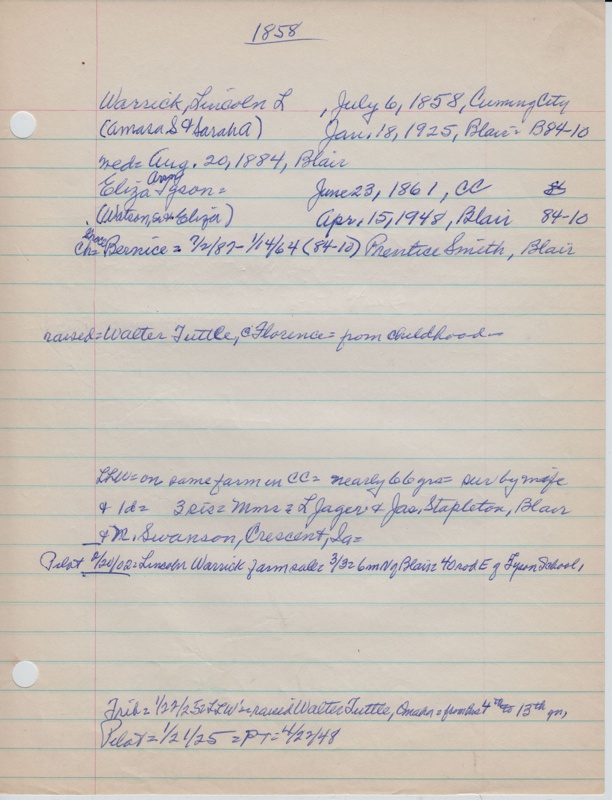 1858
Warrick, Lincoln L , July 6, 1858, Cuming City
(Amasa S & Sarah A) Jan. 18, 1925, Blair = B84-10
wed = Aug. 20, 1884, Blair
Eliza Tyson = June 23, 1861, CC
(Watson, & Eliza) Apr. 15, 1948, Blair 84-10
Grace
Ch = Bernice = 7/2/87 - 1/14/64 (84-10) Prentice Smith, Blair
raised = Walter Tuttle, c Florence = from childhood —
LLW = on same farm in CC = nearly 66 yrs = sur by wife
& 1d = 3 sis = Mmes = L Jager & Jas. Stapleton, Blair
& M. Swanson, Crescent, Ia =
Pilot 2/20/02 = Lincoln Warrick farm sale = 3/3 = 6 m N of Blair = 40 rod E of Tyson School,
Trib = 1/22/25 = LLW's = raised Walter Tuttle, Omaha = from his 4th to 13th yr,
Pilot = 1/21/25 = PT = 4/22/48